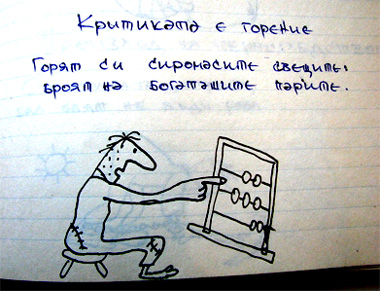 Критиката е горение
Горят си сиромасите свещите,
броят на богаташите парите.